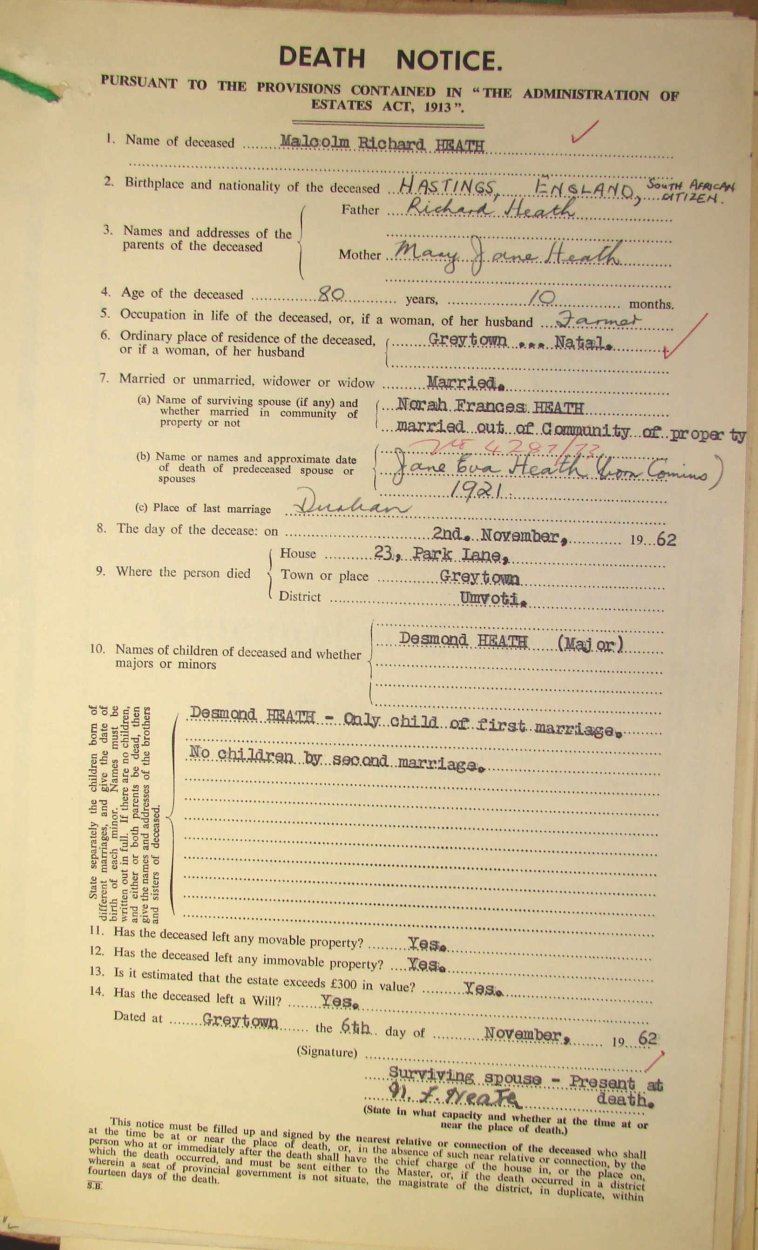 DEATH NOTICE.
PURSUANT TO THE PROVISIONS CONTAINED IN "THE ADMINISTRATION OF
ESTATES ACT, 1913".
1. Name of deceased Malcolm Richard HEATH
2. Birthplace and nationality of the deceased HASTINGS, ENGLAND, SOUTH AFRICAN CITIZEN.
3. Names and addresses of the parents of the deceased
Father Richard Heath
Mother Mary Jane Heath
4. Age of the deceased 80 years, 10 months.
5. Occupation in life of the deceased, or, if a woman, of her husband Farmer
6. Ordinary place of residence of the deceased, Greytown ... Natal.
or if a woman, of her husband
7. Married or unmarried, widower or widow Married.
(a) Name of surviving spouse (if any) and Norah Frances HEATH
whether married in community of married out of Community of property
property or not
4287/73
(b) Name or names and approximate date Jane Eva Heath (born Comins)
of death of predeceased spouse or
spouses 1921.
(c) Place of last marriage Durban
8. The day of the decease: on 2nd. November, 1962
9. Where the person died
House 23, Park Lane,
Town or place Greytown
District Umvoti.
10. Names of children of deceased and whether Desmond HEATH (Major)
majors or minors
State separately the children born of
different marriages, and give the date of
birth of each minor. Names must be
written out in full. If there are no children,
and either or both parents be dead, then
give the names and addresses of the brothers
and sisters of deceased.
Desmond HEATH - Only child of first marriage.
No children by second marriage.
11. Has the deceased left any movable property? Yes.
12. Has the deceased left any immovable property? Yes.
13. Is it estimated that the estate exceeds £300 in value? Yes.
14. Has the deceased left a Will? Yes.
Dated at Greytown the 6th day of November, 1962
(Signature)
Surviving spouse - Present at
N. F. Heath death.
(State in what capacity and whether at the time at or
near the place of death.)
This notice must be filled up and signed by the nearest relative or connection of the deceased who shall
at the time be at or near the place of death, or, in the absence of such near relative or connection, by the
person who at or immediately after the death shall have the chief charge of the house in, or the place on,
which the death occurred, and must be sent either to the Master, or, if the death occurred in a district
wherein a seat of provincial government is not situate, the magistrate of the district, in duplicate, within
fourteen days of the death.
S.B.